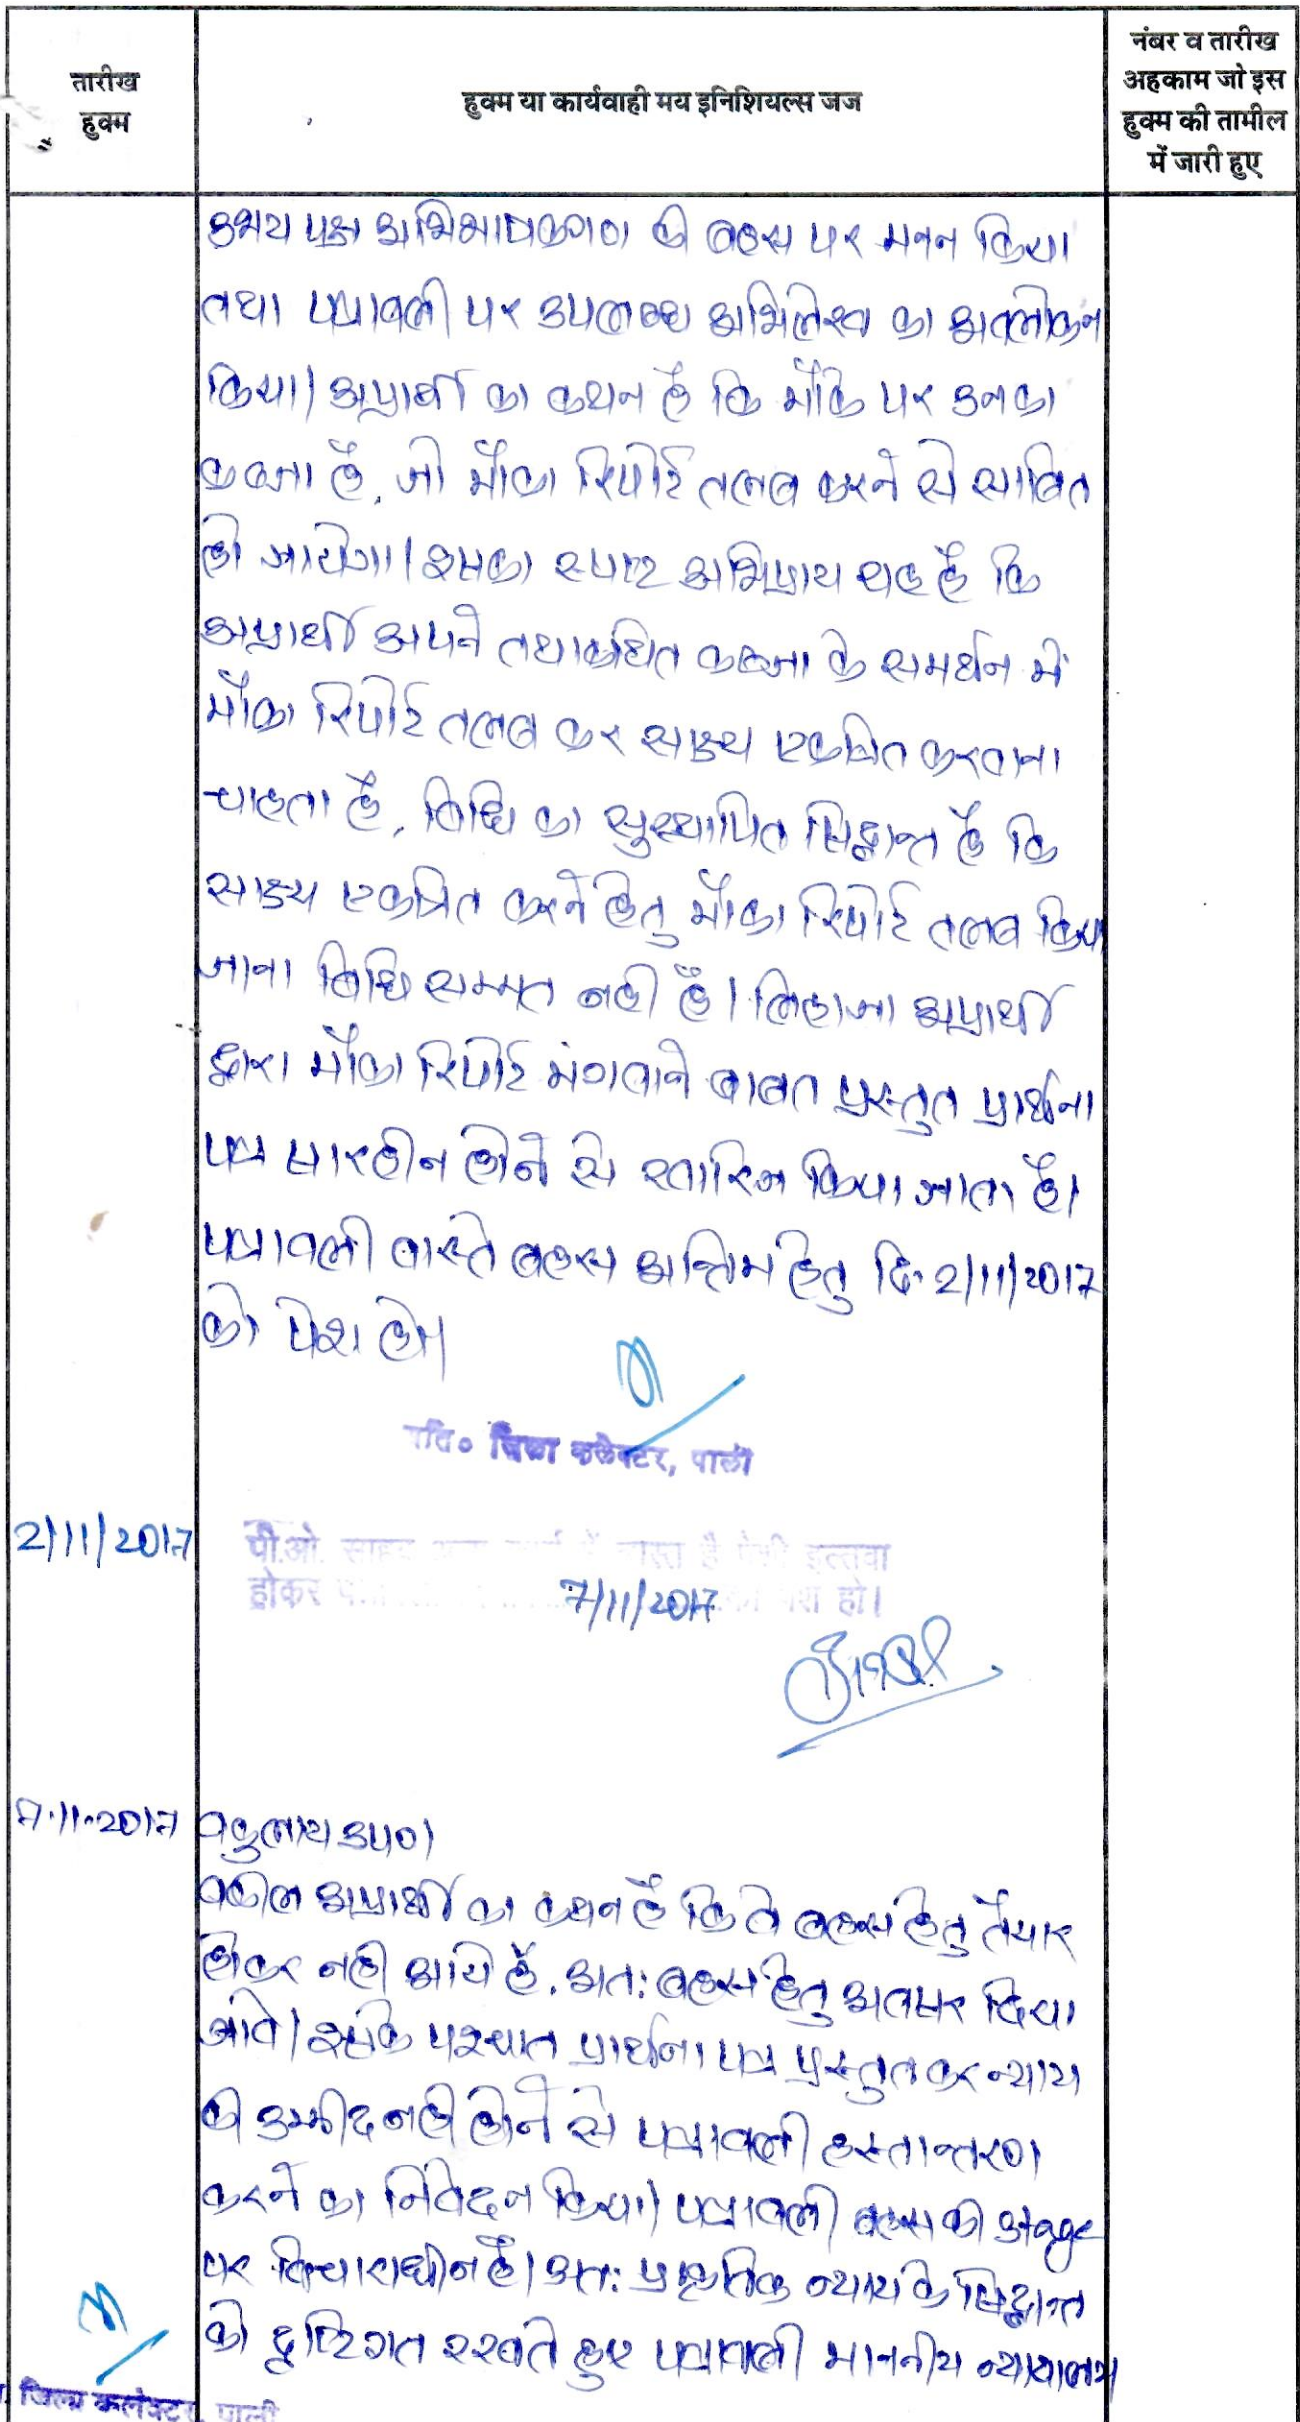 तारीख
हुक्म
हुक्म या कार्यवाही मय इनिशियल्स जज
नंबर व तारीख
अहकाम जो इस
हुक्म की तामील
में जारी हुए
उभय पक्ष अभिभाषकगण की बहस पर मनन किया
तथा पत्रावली पर उपलब्ध अभिलेख का अवलोकन
किया। अप्रार्थी का कथन है कि मौके पर उनका
कब्जा है, जो मौका रिपोर्ट तलब करने से साबित
हो जायेगा। इसका स्पष्ट अभिप्राय यह है कि
अप्रार्थी अपने तथाकथित कब्जा के समर्थन में
मौका रिपोर्ट तलब कर साक्ष्य एकत्रित करवाना
चाहता है, विधि का सुस्थापित सिद्धान्त है कि
साक्ष्य एकत्रित करने हेतु मौका रिपोर्ट तलब किया
जाना विधि सम्मत नहीं है। लिहाजा अप्रार्थी
द्वारा मौका रिपोर्ट मंगवाने बाबत प्रस्तुत प्रार्थना
पत्र सारहीन होने से खारिज किया जाता है।
पत्रावली वास्ते बहस अन्तिम हेतु दि. 2/11/2017
को पेश हो।
अति० जिला कलेक्टर, पाली
2/11/2017
पी.ओ. साहब में व्यस्त है पेशी इल्तवा
होकर 7/11/2017 को पेश हो।
7.11.2017
वकुलाय उप०।
वकील अप्रार्थी का कथन है कि वे बहस हेतु तैयार
होकर नहीं आये हैं, अतः बहस हेतु अवसर दिया
जावे। इसके पश्चात प्रार्थना पत्र प्रस्तुत कर न्याय
की उम्मीद नहीं होने से पत्रावली हस्तान्तरण
करने का निवेदन किया। पत्रावली बहस की stage
पर विचाराधीन है। अतः प्राकृतिक न्याय के सिद्धान्त
को दृष्टिगत रखते हुए पत्रावली माननीय न्यायालय
जिला कलेक्टर, पाली